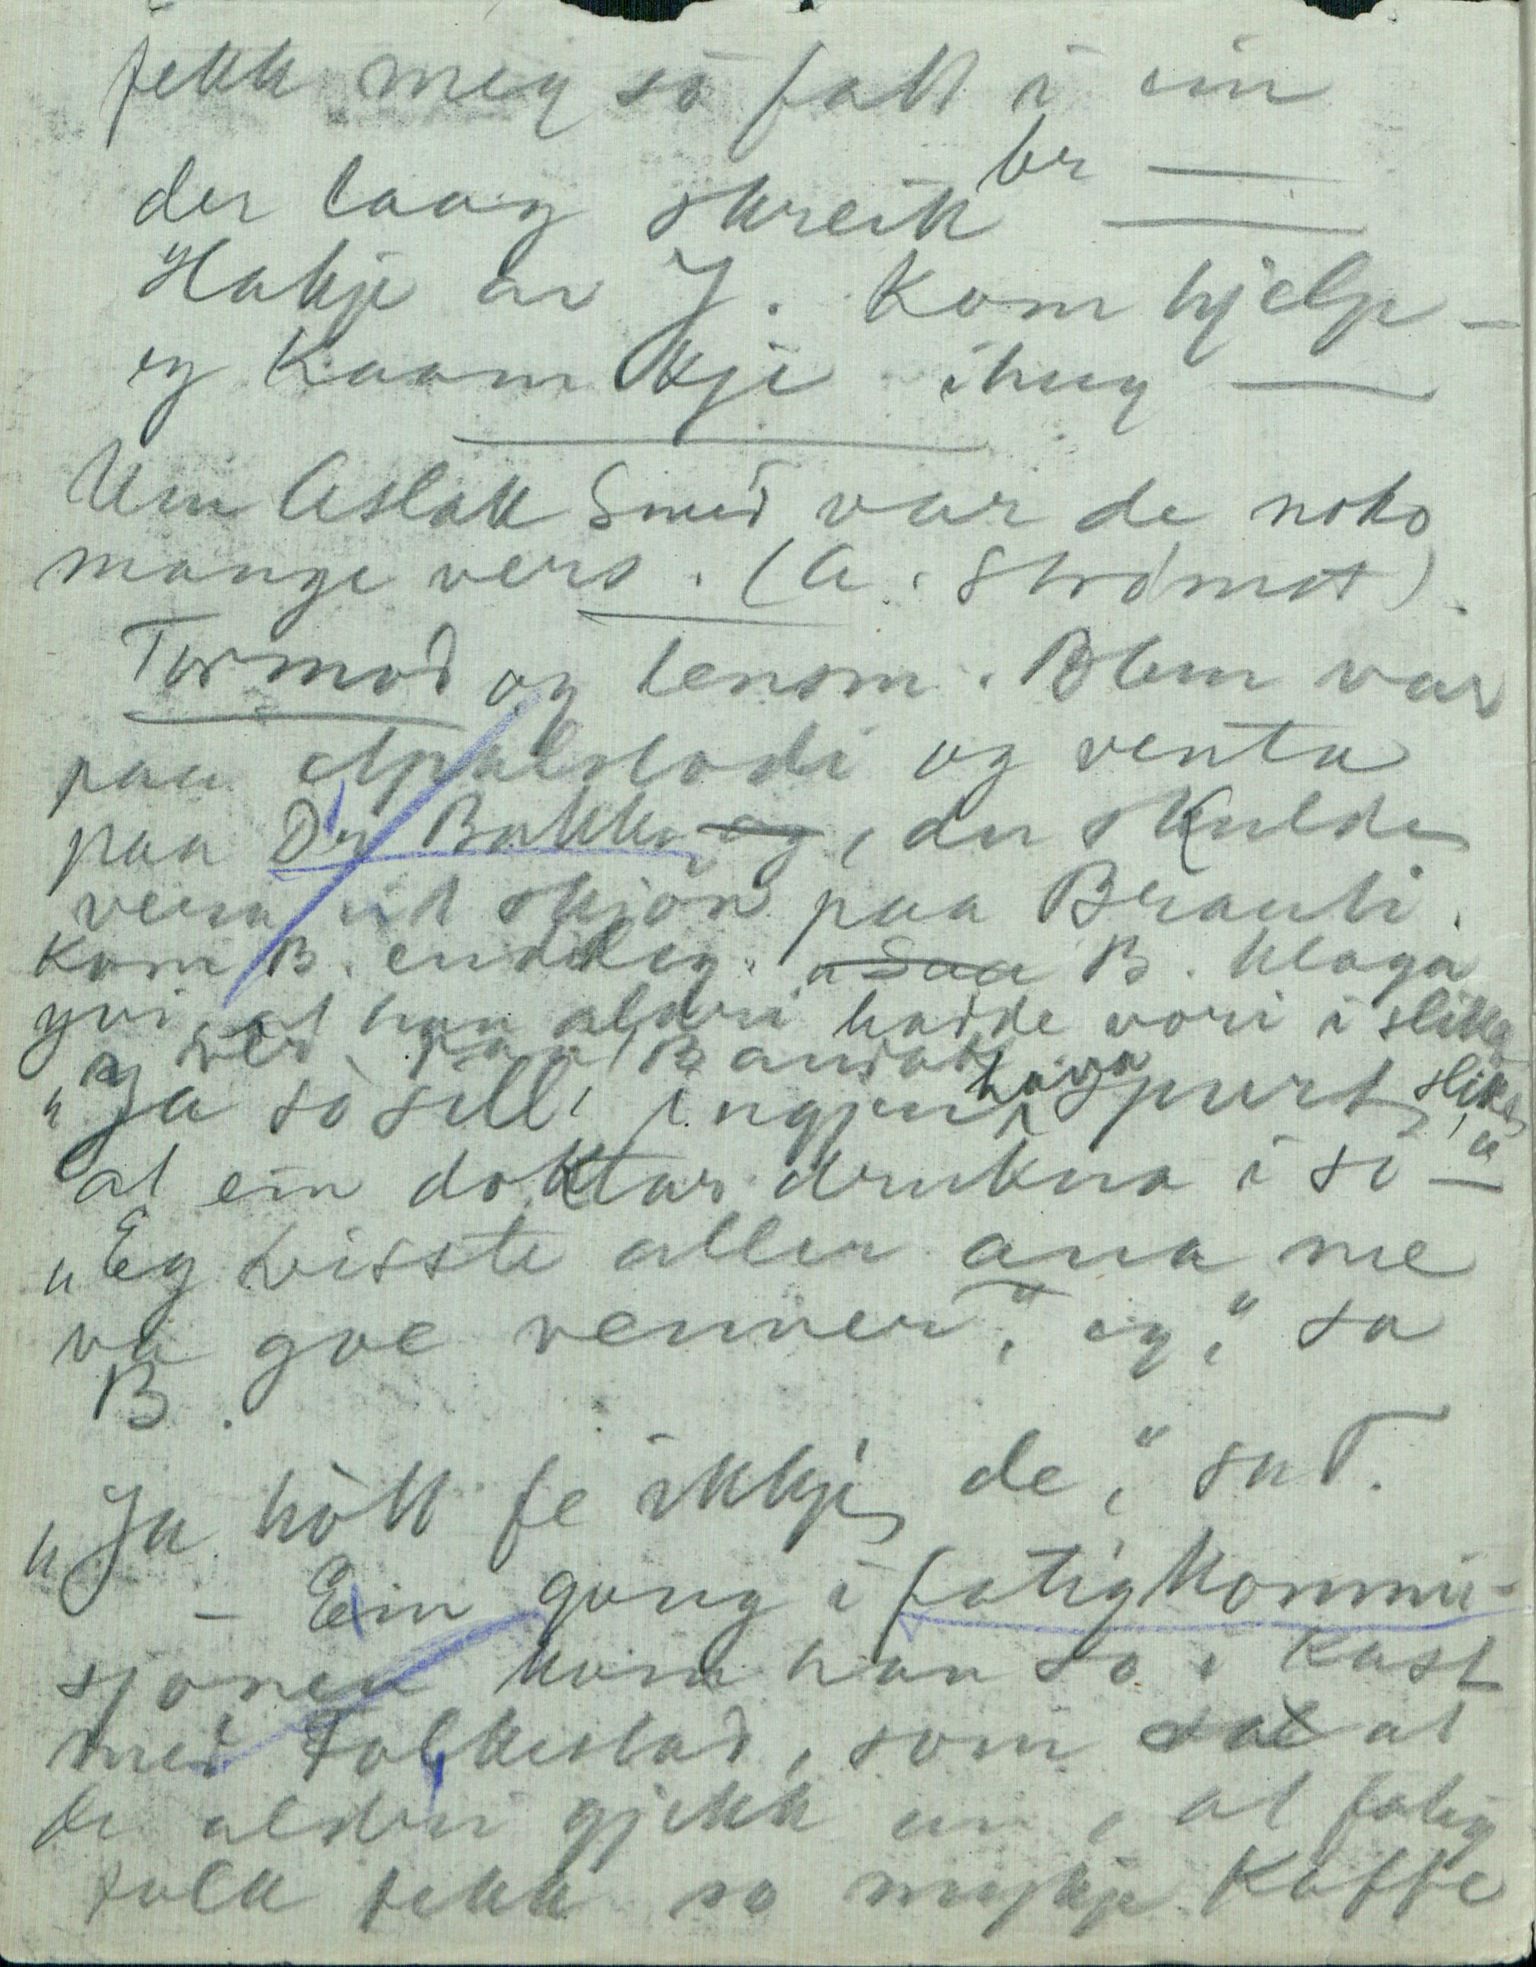 fekk meg so fatt i ein
br —
der laag skreik —
Hakje av J. Kom hjelp —
eg kaam kje ihug —
Um Aslak Smed var de noko
mange vers. (A. Strömot).
Tormod og lensm. Blom var
paa Apalstodi og venta
paa Dr Bakke og, der skulde
vera eit skjön paa Brauti.
Kom B. endeleg. Saa B. klaga
yvi at han aldri hadde vori i slikt
ver paa Bandak
"Ja so sill' ingjen hava spurt slikt,
at ein doktar drukna i sö —"
"Eg visste aller ana me
va goe venner," eg," sa
B.
"Ja hòtt fe ikkje de," sa T.
– Ein gong i fatigkommi-
sjonen kom han so i kast
med Folkestad, som sa at
de aldri gjekk an, at fatig
folk fekk so mykje kaffe